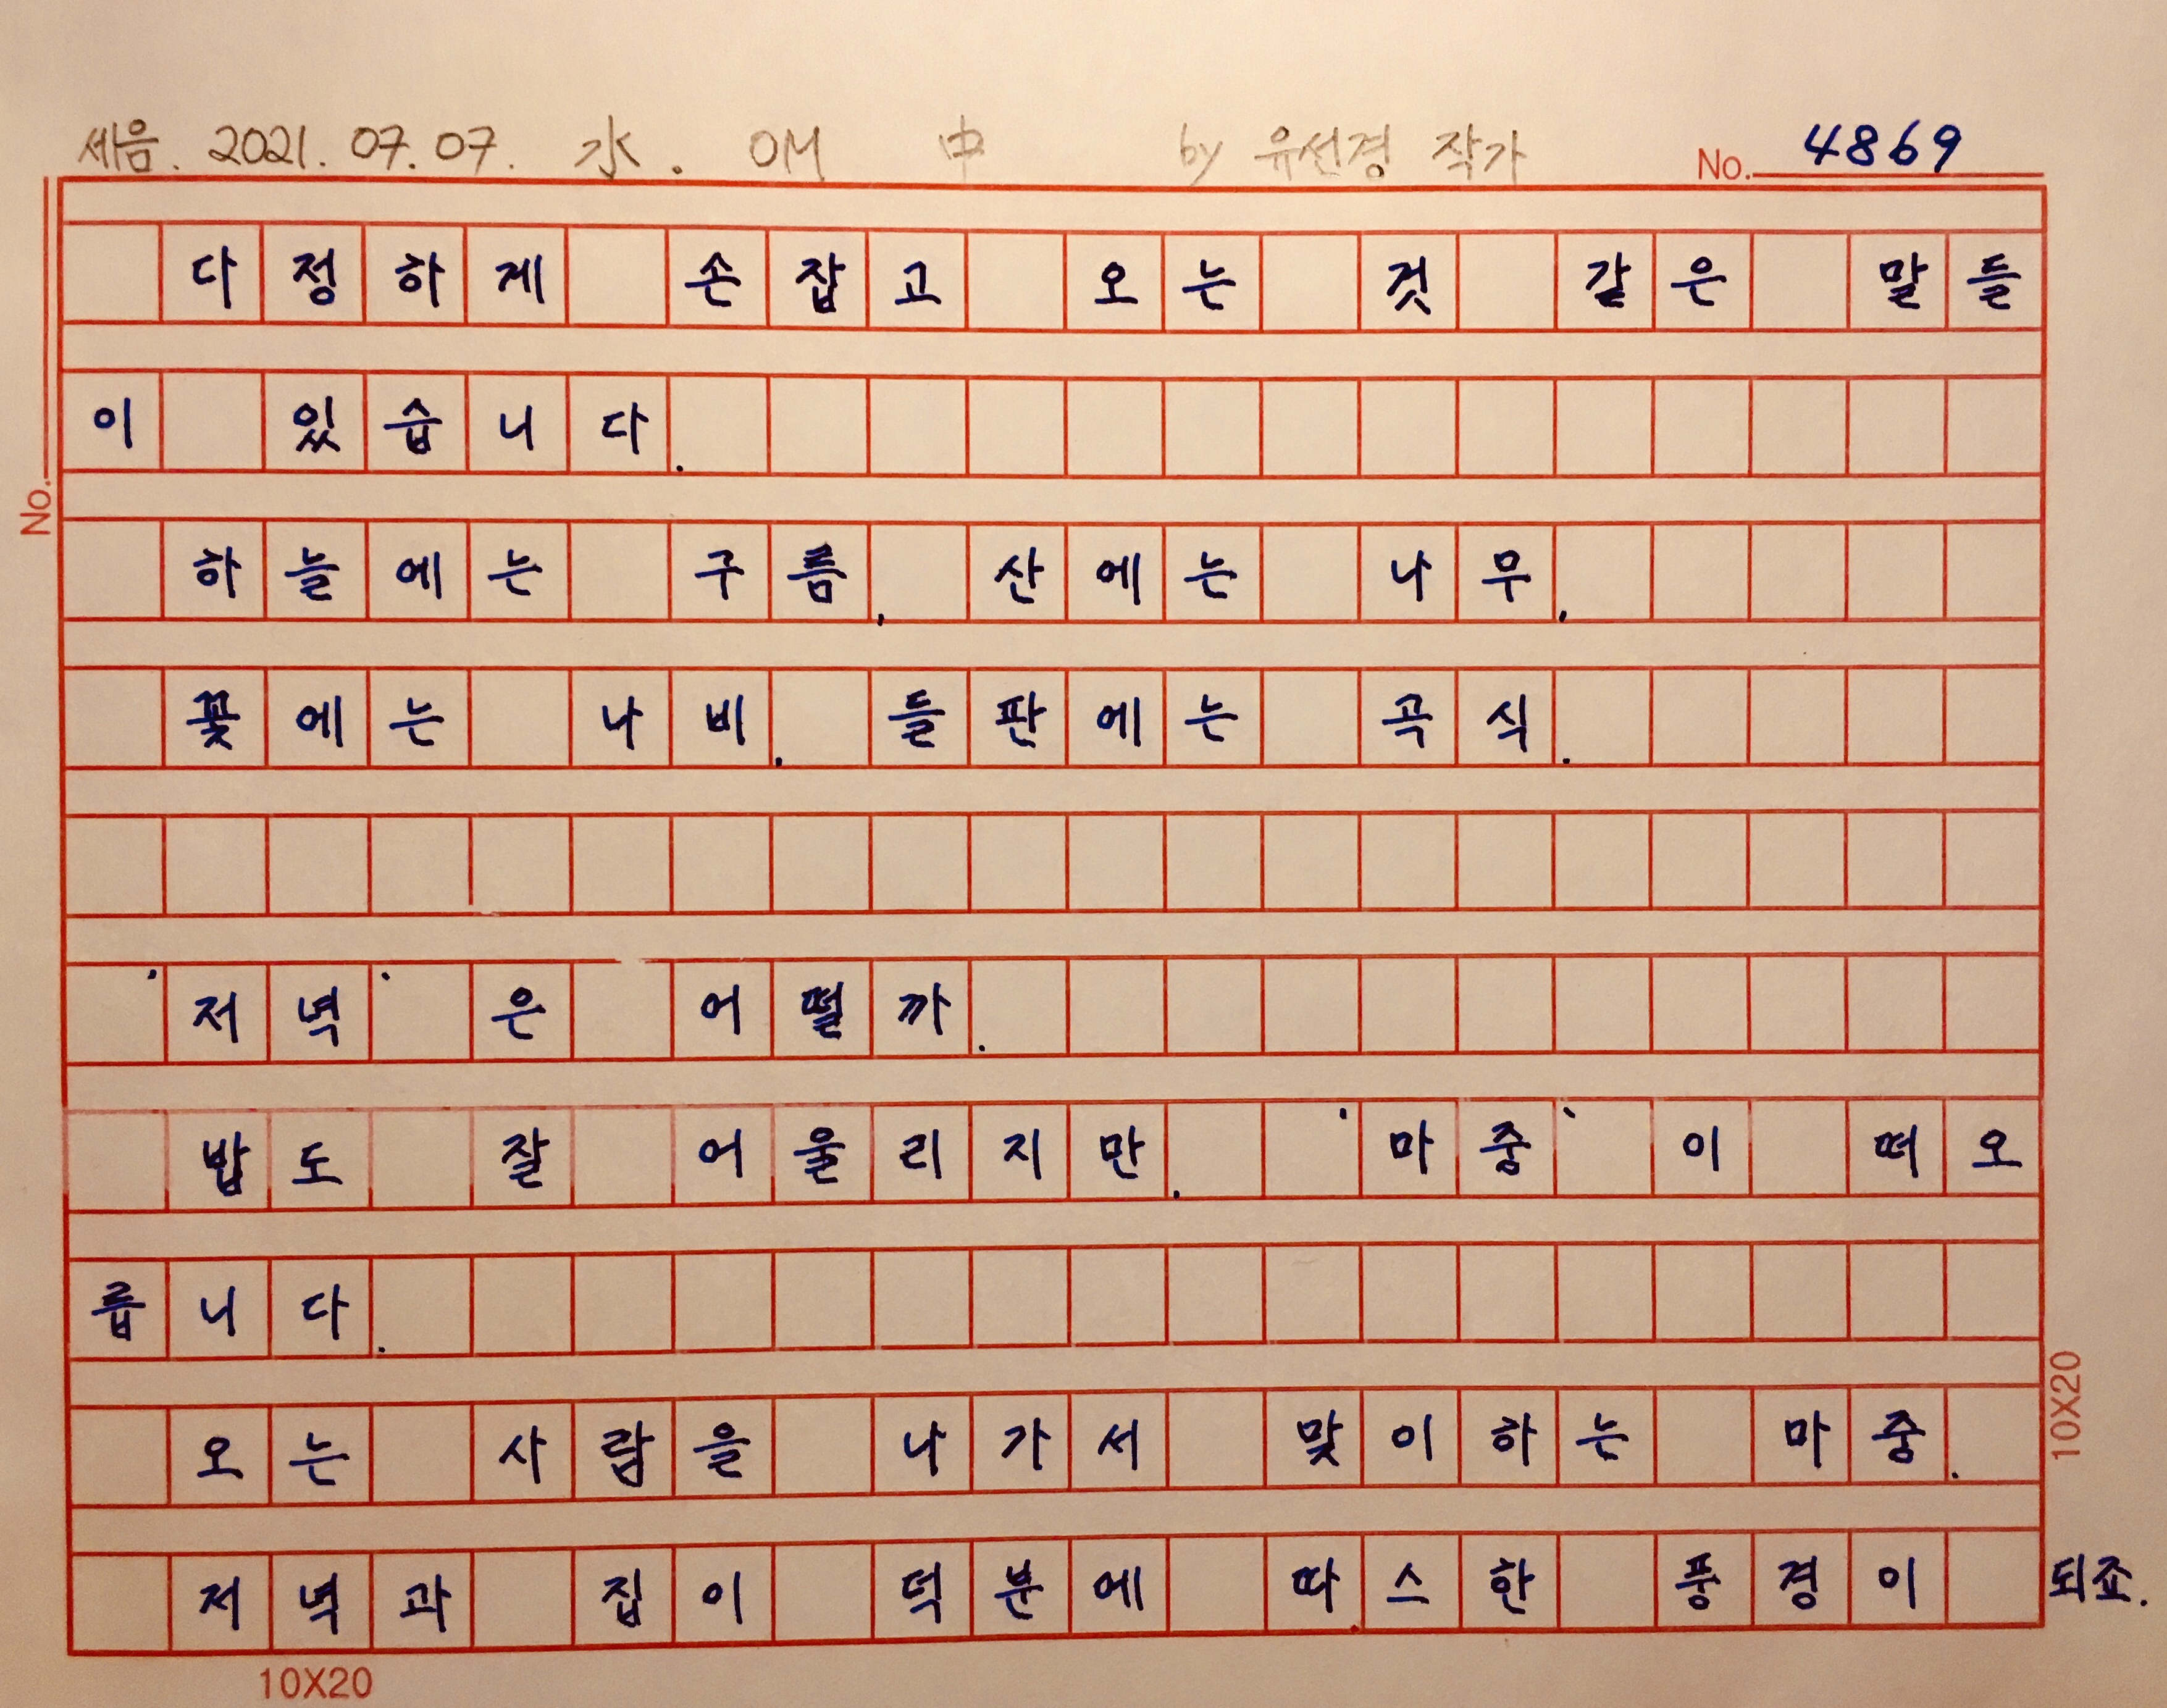 세음. 2021. 07. 07. 水. OM 中 by 유선경 작가 No. 4869
다정하게 손잡고 오는 것 같은 말들
이 있습니다.
No.
하늘에는 구름, 산에는 나무,
꽃에는 나비, 들판에는 곡식.
'저녁'은 어떨까.
밥도 잘 어울리지만, '마중'이 떠오
릅니다.
오는 사람을 나가서 맞이하는 마중.
10X20
저녁과 집이 덕분에 따스한 풍경이 되죠.
10X20